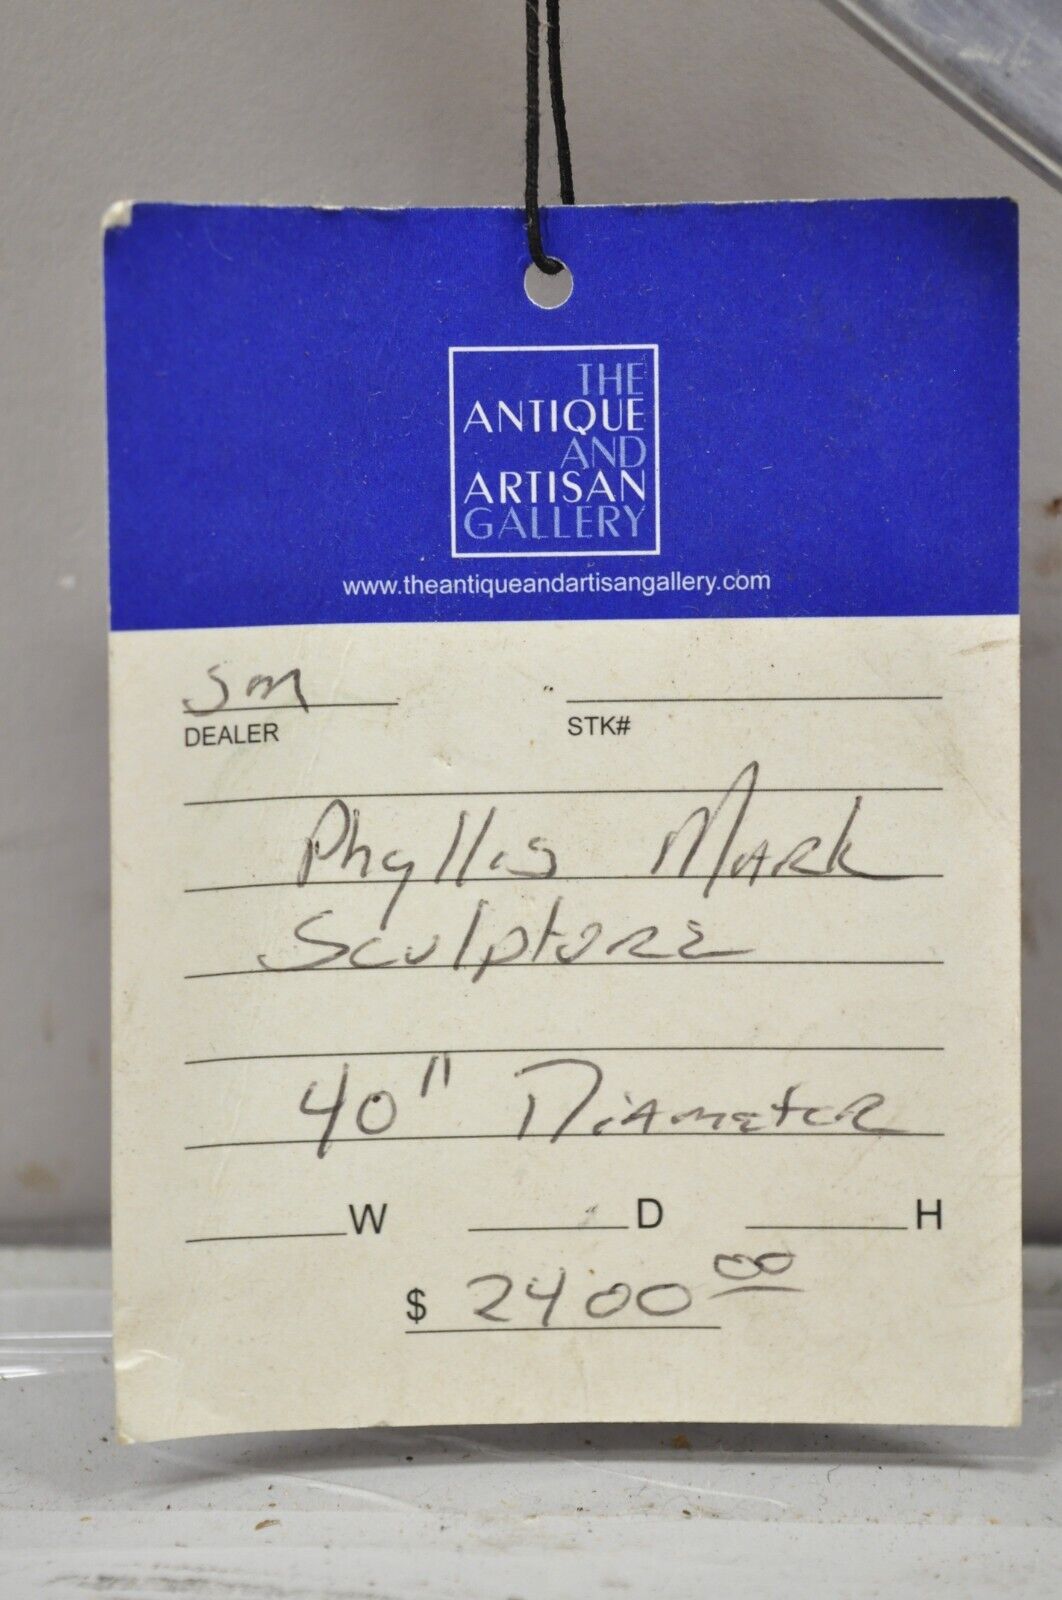 THE
ANTIQUE
AND
ARTISAN
GALLERY
www.theantiqueandartisangallery.com
SM
DEALER STK#
Phyllis MARK
Sculpture
40" DiAmeteR
W D H
$ 2400 00